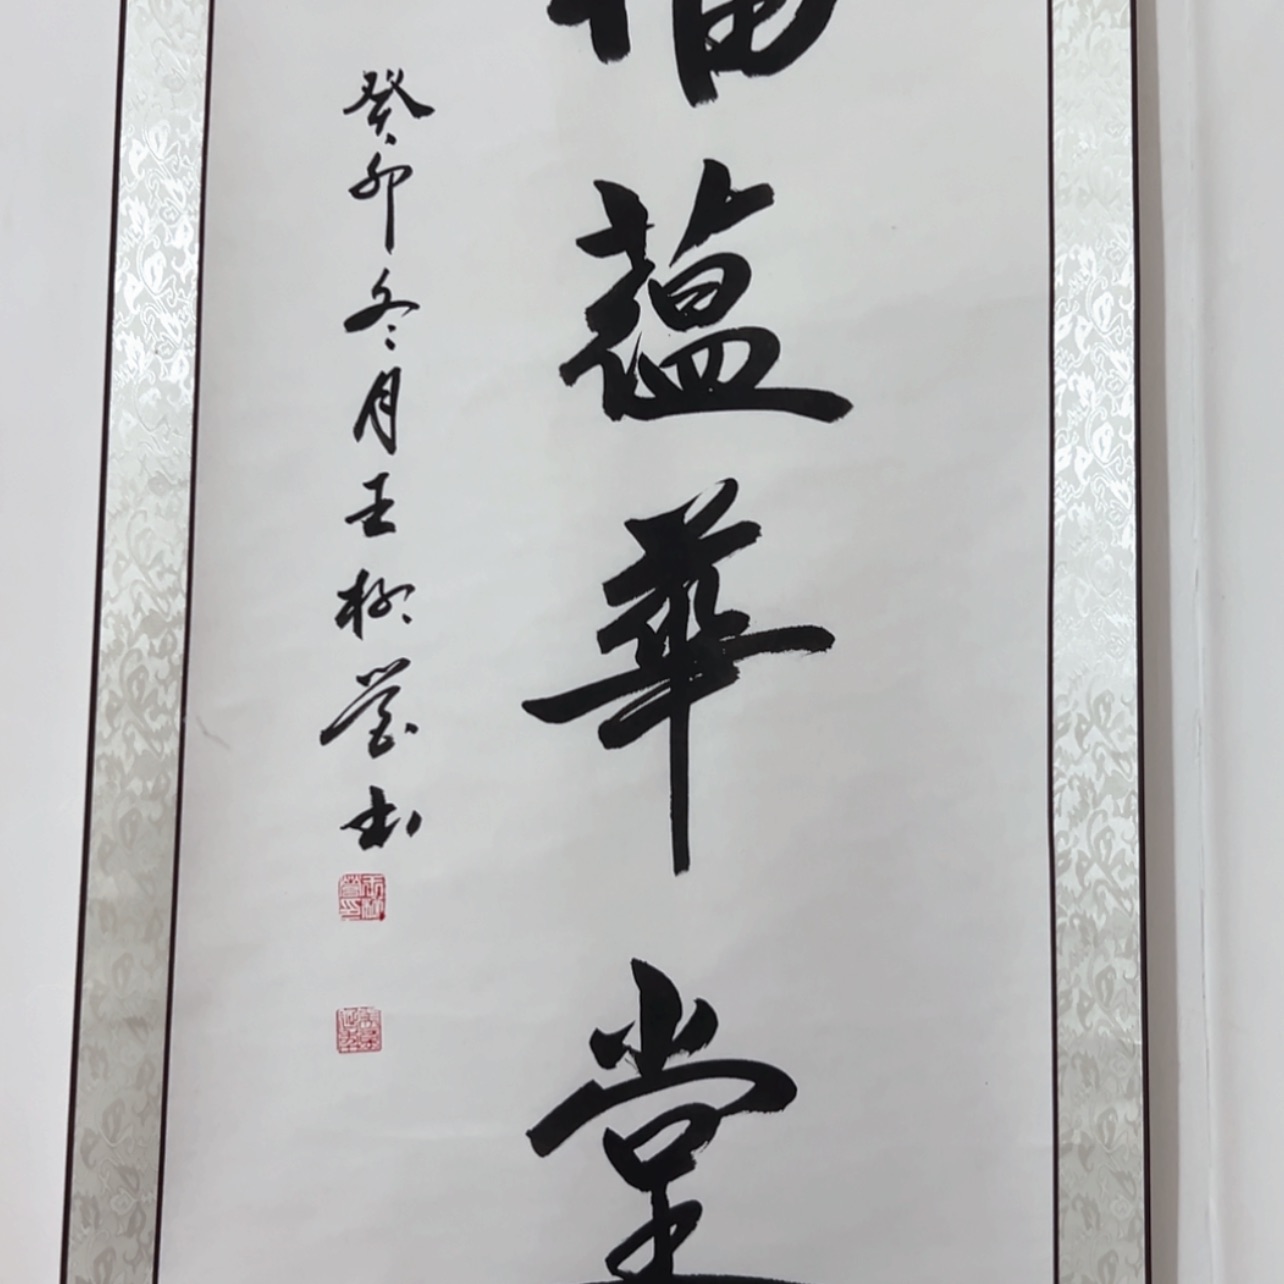 福蕴華堂
癸卯冬月王柳莹书